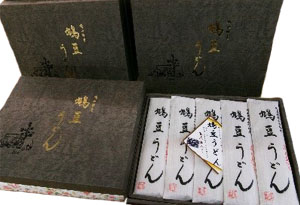 鳩豆うどん
鳩豆うどん
鳩豆うどん
鳩豆うどん
鳩豆うどん
鳩豆うどん
鳩豆うどん
鳩豆うどん